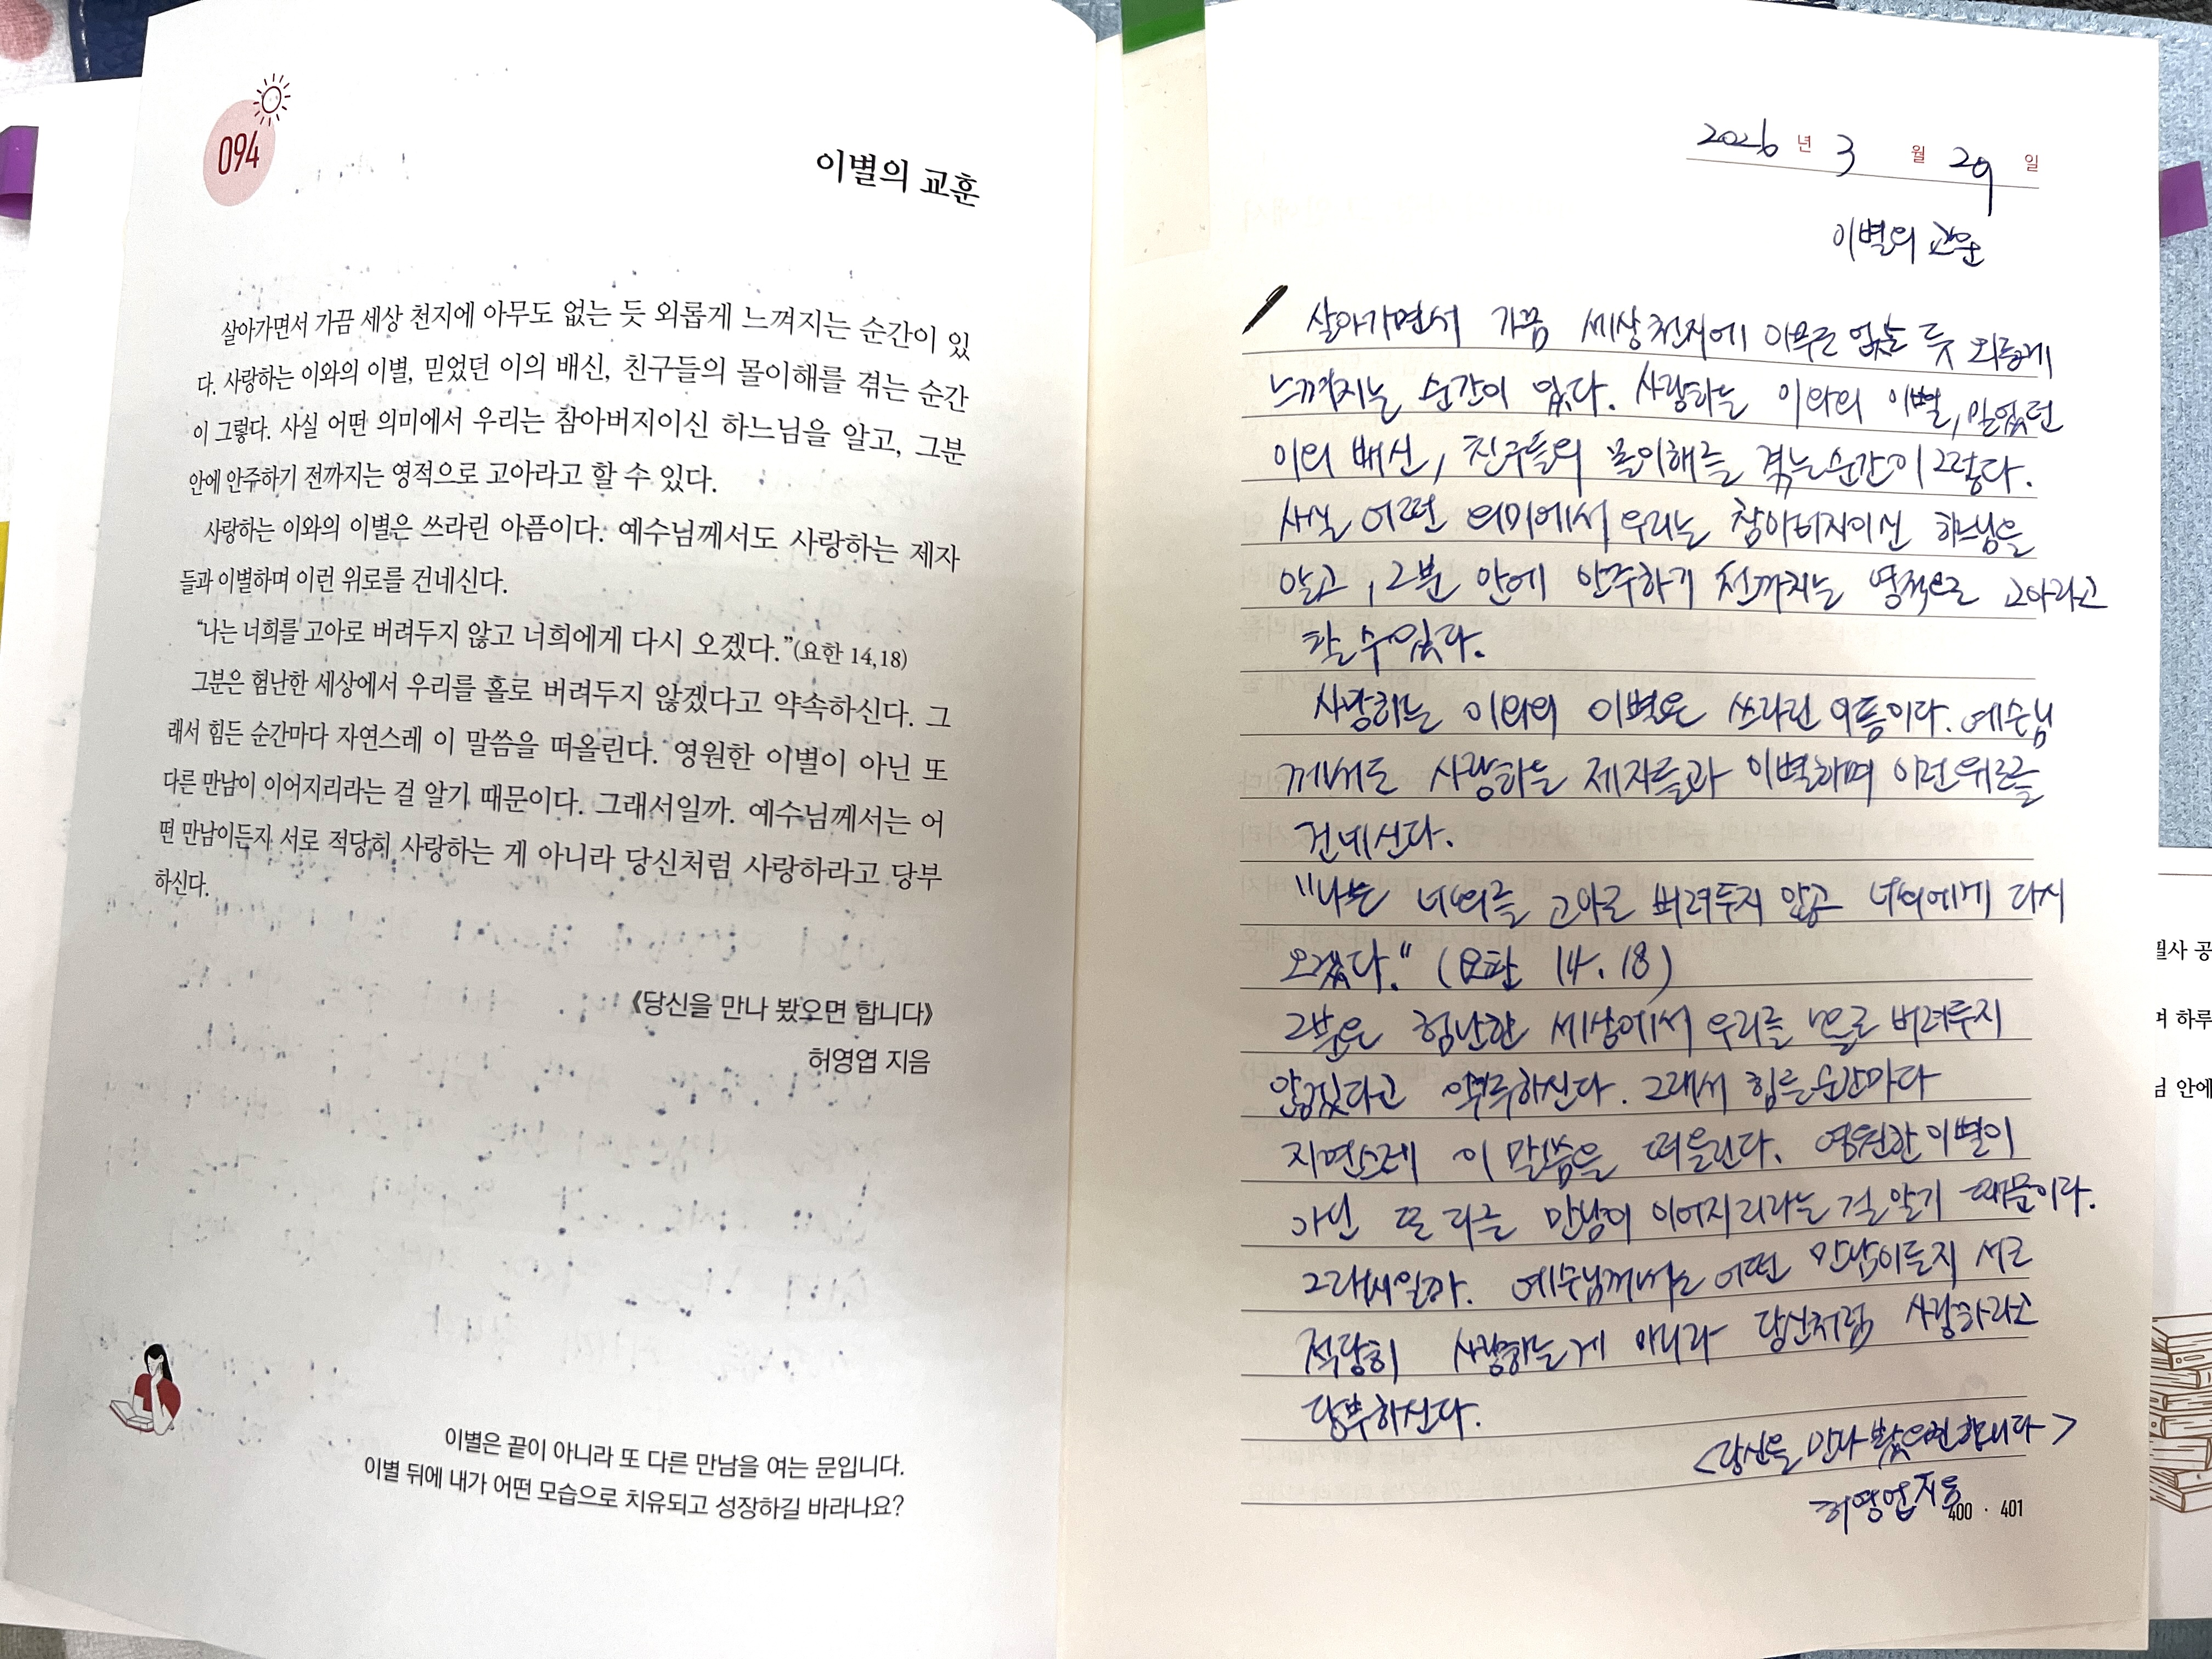 094
이별의 교훈
살아가면서 가끔 세상 천지에 아무도 없는 듯 외롭게 느껴지는 순간이 있
다. 사랑하는 이와의 이별, 믿었던 이의 배신, 친구들의 몰이해를 겪는 순간
이 그렇다. 사실 어떤 의미에서 우리는 참아버지이신 하느님을 알고, 그분
안에 안주하기 전까지는 영적으로 고아라고 할 수 있다.
사랑하는 이와의 이별은 쓰라린 아픔이다. 예수님께서도 사랑하는 제자
들과 이별하며 이런 위로를 건네신다.
“나는 너희를 고아로 버려두지 않고 너희에게 다시 오겠다.”(요한 14,18)
그분은 험난한 세상에서 우리를 홀로 버려두지 않겠다고 약속하신다. 그
래서 힘든 순간마다 자연스레 이 말씀을 떠올린다. 영원한 이별이 아닌 또
다른 만남이 이어지리라는 걸 알기 때문이다. 그래서일까. 예수님께서는 어
떤 만남이든지 서로 적당히 사랑하는 게 아니라 당신처럼 사랑하라고 당부
하신다.
《당신을 만나 봤으면 합니다》
허영엽 지음
이별은 끝이 아니라 또 다른 만남을 여는 문입니다.
이별 뒤에 내가 어떤 모습으로 치유되고 성장하길 바라나요?
2026 년 3 월 29 일
이별의 교훈
살아가면서 가끔 세상천지에 아무도 없는 듯 외롭게
느껴지는 순간이 있다. 사랑하는 이와의 이별, 믿었던
이의 배신, 친구들의 몰이해를 겪는 순간이 그렇다.
사실 어떤 의미에서 우리는 참아버지이신 하느님을
알고, 그분 안에 안주하기 전까지는 영적으로 고아라고
할 수 있다.
사랑하는 이와의 이별은 쓰라린 아픔이다. 예수님
께서도 사랑하는 제자들과 이별하며 이런 위로를
건네신다.
"나는 너희를 고아로 버려두지 않고 너희에게 다시
오겠다." (요한 14. 18)
그분은 험난한 세상에서 우리를 홀로 버려두지
않겠다고 약속하신다. 그래서 힘든 순간마다
자연스레 이 말씀을 떠올린다. 영원한 이별이
아닌 또 다른 만남이 이어지리라는 걸 알기 때문이다.
그래서일까. 예수님께서는 어떤 만남이든지 서로
적당히 사랑하는 게 아니라 당신처럼 사랑하라고
당부하신다.
<당신을 만나 봤으면 합니다>
허영엽 지음
400 · 401
필사 공
며 하루
님 안에